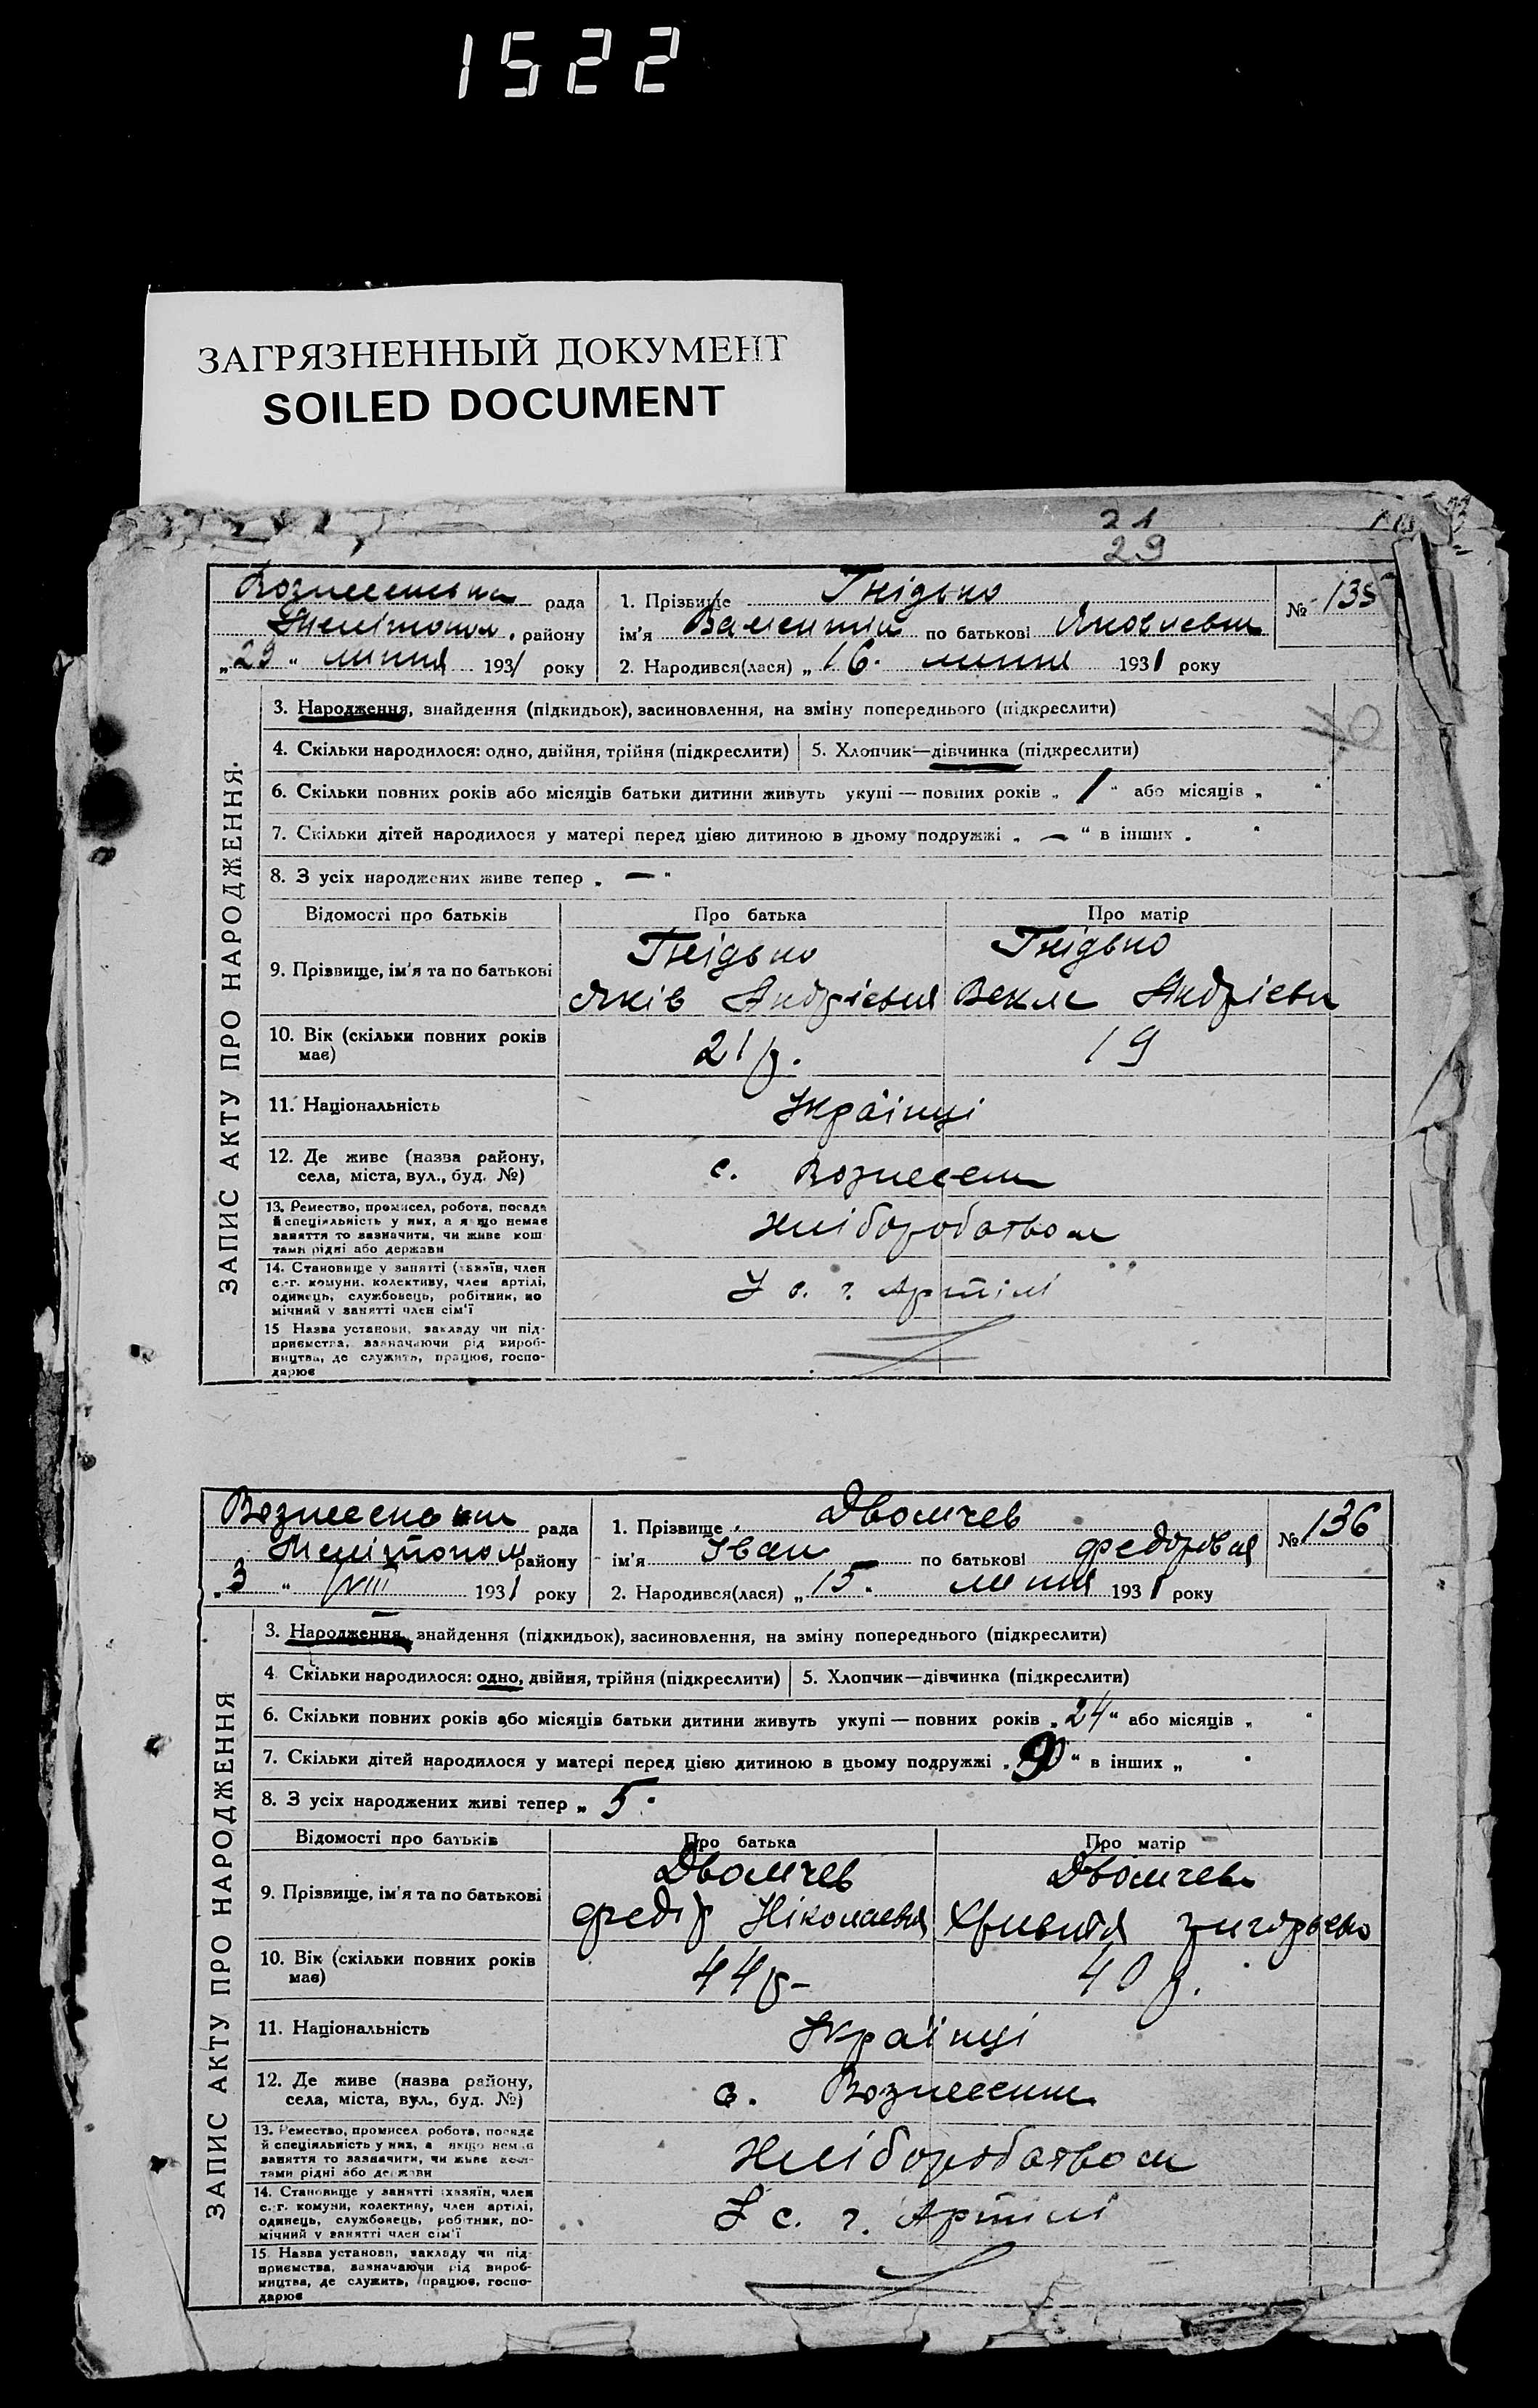 1522
ЗАГРЯЗНЕННЫЙ ДОКУМЕНТ
SOILED DOCUMENT
21
29
Вознесенська рада
Мелітопол. району
„29“ липня 1931 року
1. Прізвище Гнідько
ім'я Валентин по батькові Яковлевн
2. Народився(лася) „16. липня 1931 року
№ 135
ЗАПИС АКТУ ПРО НАРОДЖЕННЯ.
3. Народження, знайдення (підкидьок), засиновлення, на зміну попереднього (підкреслити)
4. Скільки народилося: одно, двійня, трійня (підкреслити) 5. Хлопчик—дівчинка (підкреслити)
6. Скільки повних років або місяців батьки дитини живуть укупі — повних років „1“ або місяців „ “
7. Скільки дітей народилося у матері перед цією дитиною в цьому подружжі „—“ в інших „ “
8. З усіх народжених живе тепер „—“
Відомості про батьків Про батька Про матір
9. Прізвище, ім'я та по батькові
Гнідько Гнідько
Яків Андрієвич Векла Андрієвн
10. Вік (скільки повних років має) 21 р. 19
11. Національність Українці
12. Де живе (назва району, села, міста, вул., буд. №) с. Вознесен
13. Ремество, промисел, робота, посада
й спеціяльність у них, а якщо немає
заняття то зазначити, чи живе кош
тами рідні або держави
Хліборобством
14. Становище у занятті (хазяїн, член
с.-г. комуни, колективу, член артілі,
одинець, службовець, робітник, по
мічний у занятті член сім'ї
У с. г. Артілі
15 Назва установи, закладу чи під-
приємства, зазначаючи рід вироб-
ництва, де служить, працює, госпо-
дарює
Вознесенськ рада
Мелітопол району
„3“ VIII 1931 року
1. Прізвище Дволичев
ім'я Іван по батькові Федорович
2. Народився(лася) „15. липня 1931 року
№ 136
ЗАПИС АКТУ ПРО НАРОДЖЕННЯ
3. Народження, знайдення (підкидьок), засиновлення, на зміну попереднього (підкреслити)
4. Скільки народилося: одно, двійня, трійня (підкреслити) 5. Хлопчик—дівчинка (підкреслити)
6. Скільки повних років або місяців батьки дитини живуть укупі — повних років „24“ або місяців „ “
7. Скільки дітей народилося у матері перед цією дитиною в цьому подружжі „9“ в інших „ “
8. З усіх народжених живі тепер „5“
Відомості про батьків Про батька Про матір
9. Прізвище, ім'я та по батькові
Дволичев Дволичев
Федір Ніколаевич Григорьевн
10. Вік (скільки повних років має) 44 р. 40 р.
11. Національність Українці
12. Де живе (назва району, села, міста, вул., буд. №) с. Вознесенк
13. Ремество, промисел, робота, посада
й спеціяльність у них, а якщо немає
заняття то зазначити, чи живе кош-
тами рідні або держави
Хліборобством
14. Становище у занятті (хазяїн, член
с.-г. комуни, колективу, член артілі,
одинець, службовець, робітник, по-
мічний у занятті член сім'ї
У с. г. Артілі
15. Назва установи, закладу чи під-
приємства, зазначаючи рід вироб-
ництва, де служить, працює, госпо-
дарює